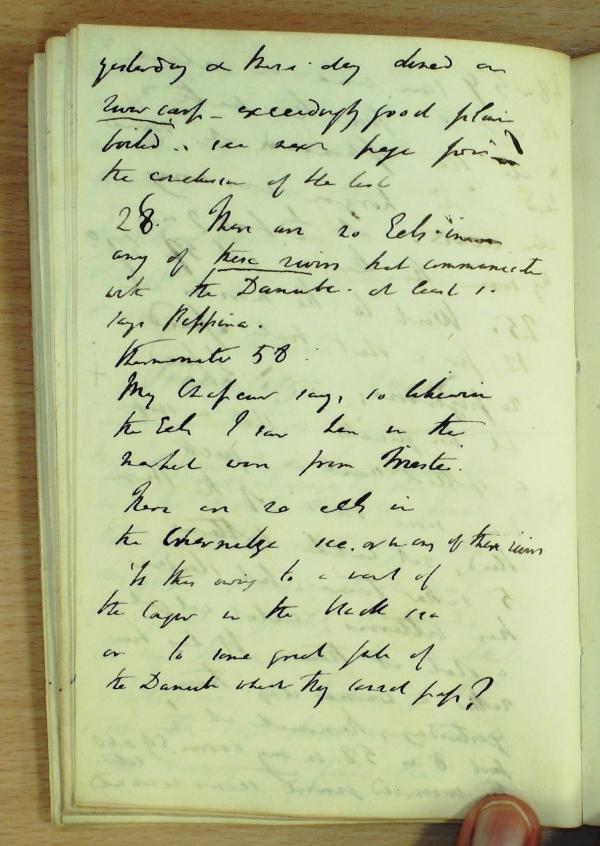 yesterday & this day dined on
river carp - exceedingly good plain
boiled .. see next page for
the conclusion of the last
28. There are no Eels in
any of these rivers that communicate
with the Danube. at least so
says Peppina.
thermometer 58
My says, so likewise
the Eels I saw here in the
market were from Trieste.
There are no eels in
the see. or in any of these rivers
Is this owing to a want of
the in the black sea
or to some great fall of
the Danube which they cannot pass?